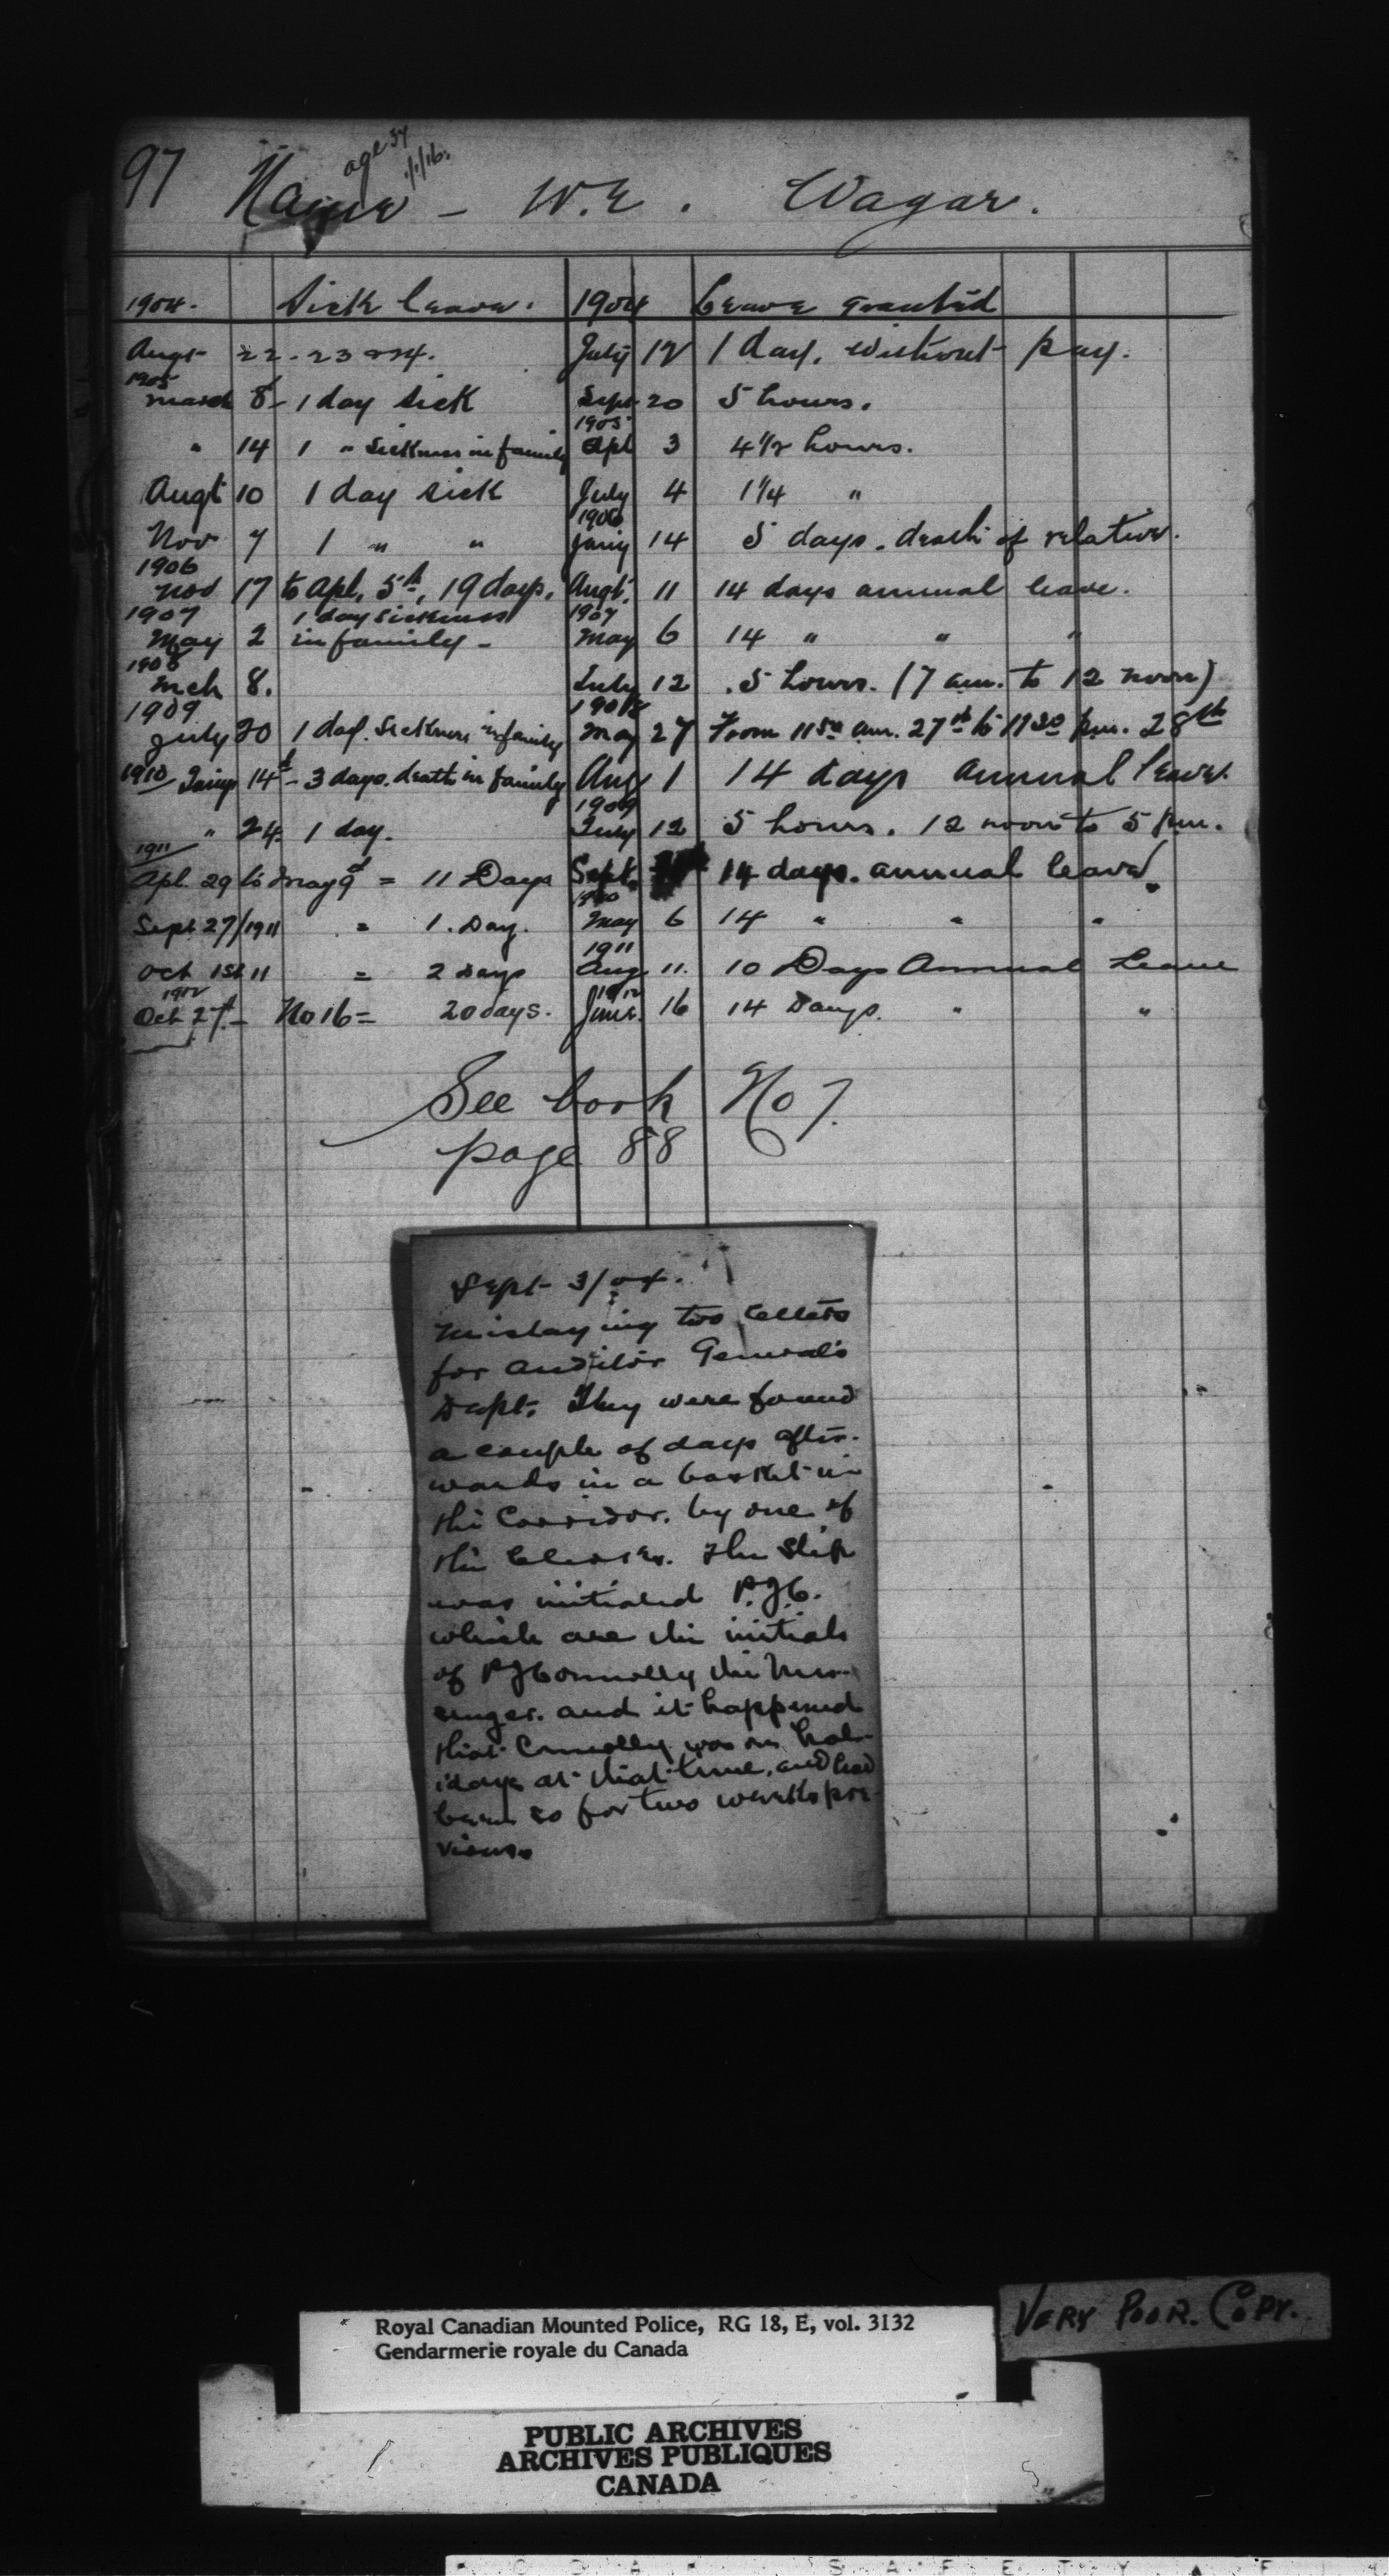 97 Name - W.E. Wagar.
age 34
1/1/16.
1904. Sick leave. 1904 Leave granted
Augt 22-23 & 24. July 12 1 day, without pay.
1905
March 8 - 1 day sick Sept 20 5 hours.
1905
" 14 1 " Sickness in family Apl 3 4 1/2 hours.
Augt 10 1 day sick July 4 1 1/4 "
1906
Nov 7 1 " " Jany 14 5 days. death of relative.
1906
17 to Apl. 5th, 19 days. Augt. 11 14 days annual leave.
1907 1 day sickness 1907
May 2 in family - May 6 14 " " "
1908
Mch 8. July 12 5 hours. (7 am. to 12 noon)
1909 1908
July 20 1 day. Sickness in family May 27 From 11 50 am. 27th to 11 30 pm. 28th
1910 Jany 14 - 3 days. death in family Aug 1 14 days annual leave.
1909
" 24. 1 day. July 12 5 hours. 12 noon to 5 pm.
1911
Apl. 29 to May 9 = 11 Days Sept. 14 days. annual leave.
1910
Sept 27/1911 = 1. Day. May 6 14 " " "
1911
Oct 1st 11 = 2 Days Aug 11. 10 Days Annual Leave
1912 1912
Oct 27 - No 16 = 20 days. June. 16 14 Days. " "
See book No 7.
page 88
Sept 3/04.
Mislaying two letters
for Auditor General's
Dept. They were found
a couple of days after-
wards in a basket in
the Corridor. by one of
the Clerks. The slip
was initialed P.J.C.
which are the initials
of P J Connolly the Mes-
senger. and it happened
that Connolly was on hol-
idays at that time, and had
been so for two weeks pre-
vious.
VERY POOR. COPY.
Royal Canadian Mounted Police, RG 18, E, vol. 3132
Gendarmerie royale du Canada
PUBLIC ARCHIVES
ARCHIVES PUBLIQUES
CANADA